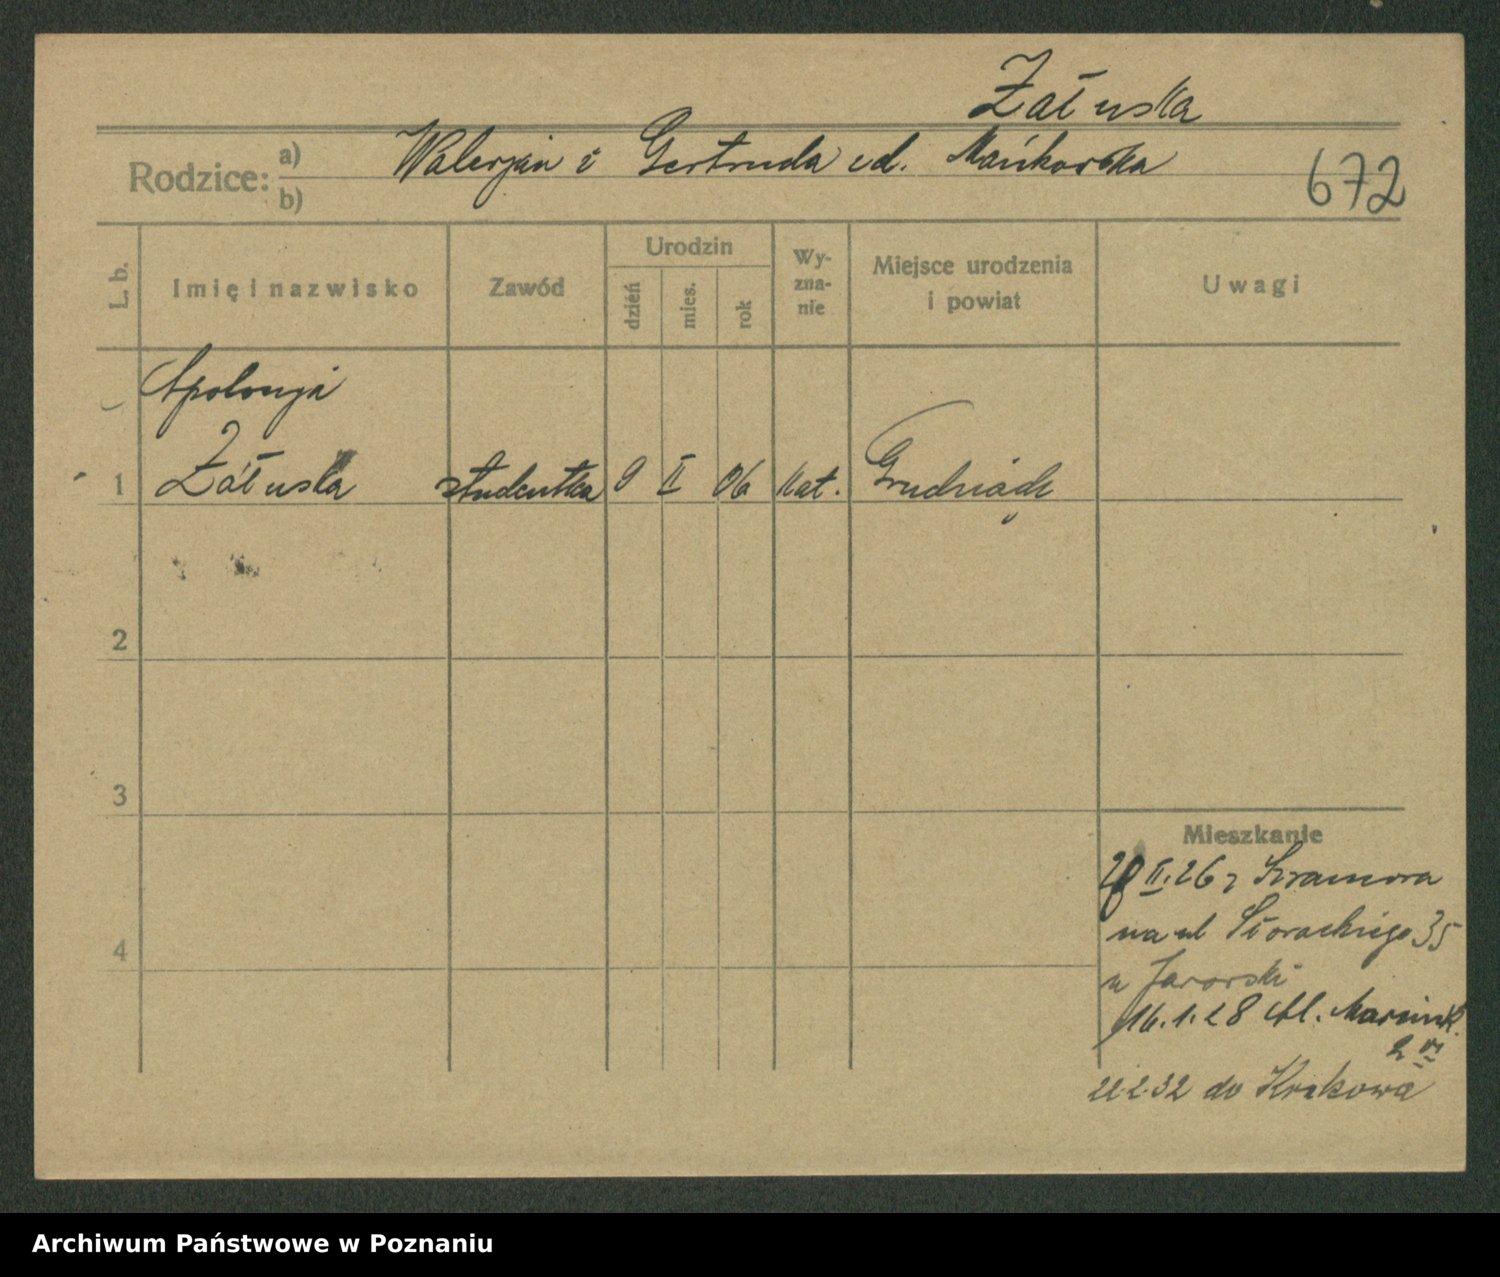 Załuska
Rodzice: a) Walerjan i Gertruda cd. Mańkowska
b)
672
L. b.
Imię i nazwisko
Zawód
Urodzin
dzień
mies.
rok
Wy-
zna-
nie
Miejsce urodzenia
i powiat
Uwagi
Apolonja
1 Załuska studentka 9 II 06 kat. Grudziądz
2
3
4
Mieszkanie
II. 26 z
na ul 35
u Jaworski
16. 1. 28 Al. Marcink.
2 VI
22.2.32 do Krakowa
Archiwum Państwowe w Poznaniu